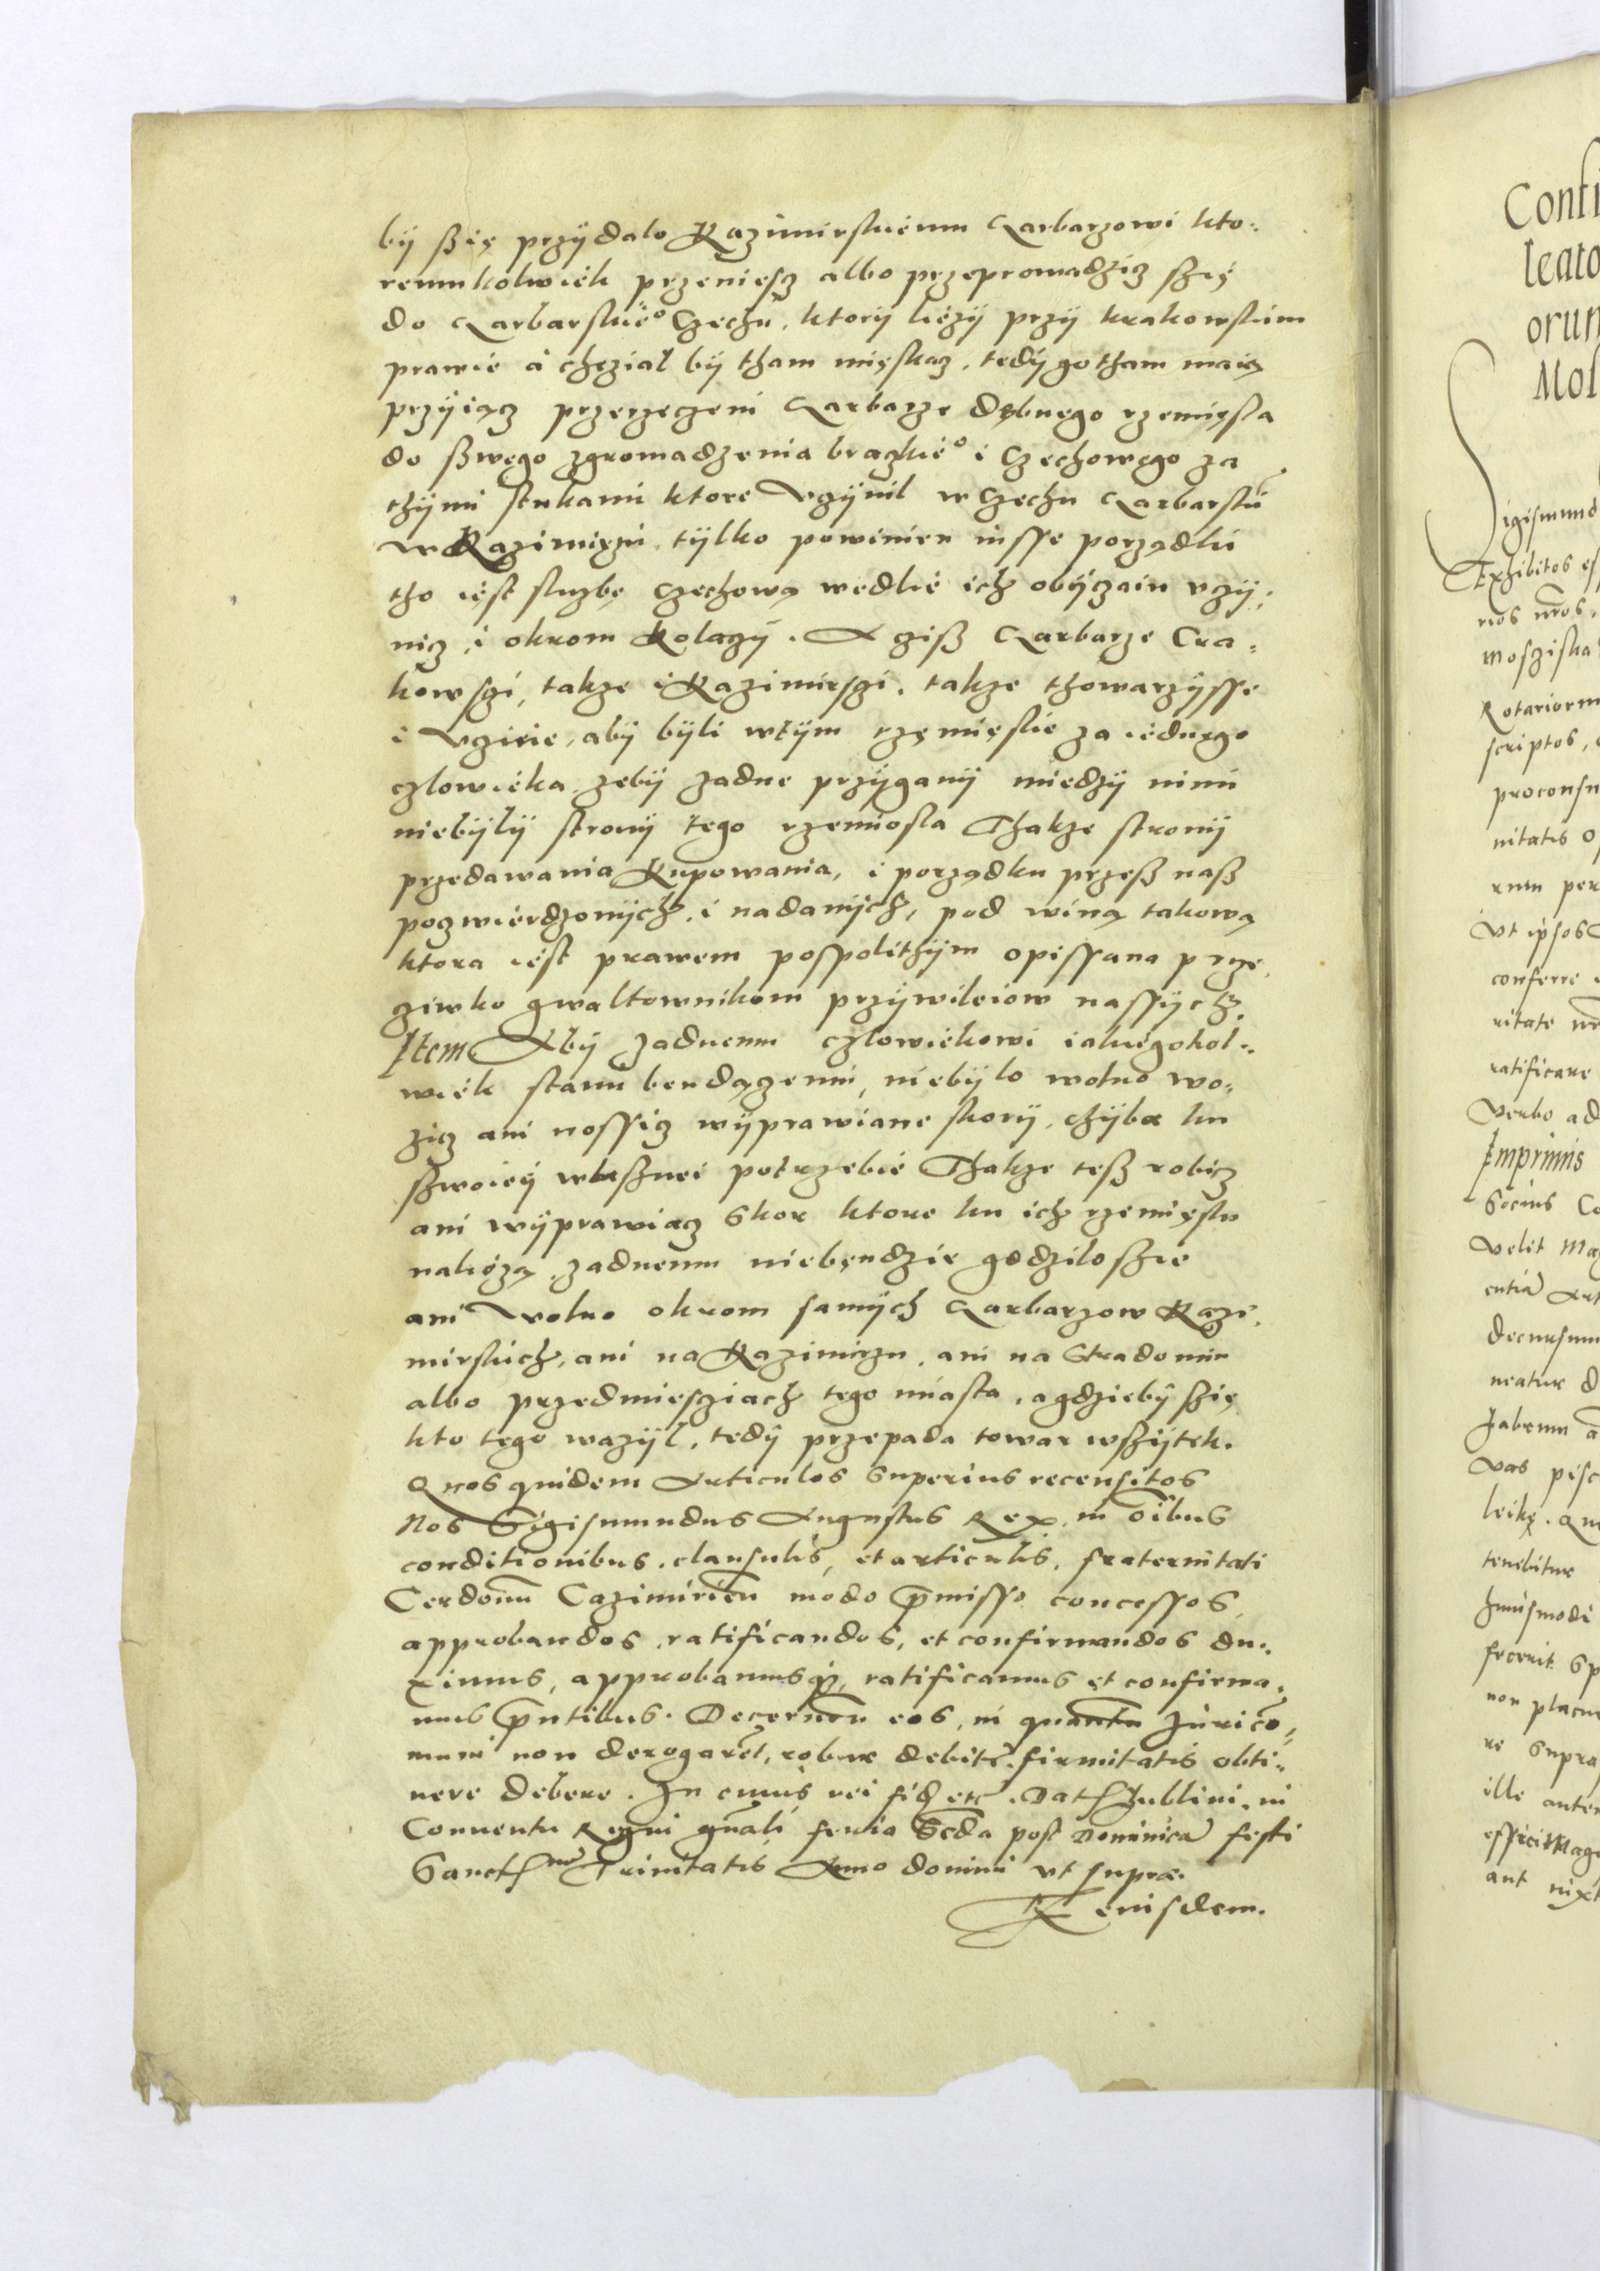 by ßię przydalo Kazimirskiemu Garbarzowi kto-
remukolwiek przeniescz albo przeprowadzicz szię
do Garbarskie° Czechu, ktory liezy przy krakowskim
prawie a chcział by tham mięskacz, tedy go tham maią
przyiącz przerzeczeni Garbarze dębnego rzemięsla
do ßwego zgromadzenia braczkie° i Czechowego za
thymi sztukami ktore vczynil w Czechu Garbarskim
w Kazimięrzu, tylko powinien insse porządki
tho iest sluzbę Czechową wedlie ich obyczaiu vczy-
nicz, i okrom Kolaczÿ. A cziß Garbarze Cra-
kowsci, takze i Kazimirsci, takze thowarzysse
i vcznie, aby byli w tym rzęmięslie za iednego
czlowieka, zeby zadne przygany miedzy nimi
niebyly strony tego rzemiosla Thakze strony
przedawania Kupowania, i porządku przeß naß
poczwierdzonych, i nadanych, pod winą takową
ktora iest prawem pospolithym opissana prze-
ziwko gwaltownikom przywileiow nassych.
Item Aby zadnemu czlowiekowi iakiegokol-
wiek stanu bendączemu, niebylo wolno wo-
zicz ani nossicz wyprawiane skory, chyba ku
szwoiey wlasznei potrzebie Thakze teß robicz
ani wyprawiacz Skor ktore ku ich rzemięslu
należą, zadnemu niebęndzie godzilo szie
ani wolno okrom samych Garbarzow Kazi-
mirskich, ani na Kazimirzu, ani na Stradomiu
albo przedmiesciach tego miasta, a gdzieby szię
kto tego wazyl, tedy przepada towar wszytek.
Quos quidem Articulos superius recensitos
Nos Sigismundus Augustus Rex, in oibus
conditionibus, clausulis, et articulis, fraternitati
Cerdonu Cazimirien modo pmisso concessos,
approbandos, ratificandos, et confirmandos du-
ximus, approbamusq, ratificamus et confirma-
mus pntibus. Decernen eos, in quantu Juri co-
muni non derogaret, robur debite firmitatis obti-
nere debere. In cuius rei fid etc. Dat Lublini, in
Conuentu Regni gnali feria Scda post Dominica festi
Sanctme Trinitatis Anno domini vt supra.
R eiusdem.
Confi
leato
orun
Mol
Sigismund
Exhibitos es
nos nros,
Mosziska
Rotariorum
scriptos,
proconsu
nitatis o
rum per
vt ipsos
conferre
ritate nr
ratificare
verbo ad
Imprimis
Socius Co
velit Mag
entia Art
Decursum
neatur d
habeam a
vas pisc
leike. Qu
tenebitur
huiusmodi
fecerit Sp
non placue
re supra
ille autem
effici Mag
aut mixt